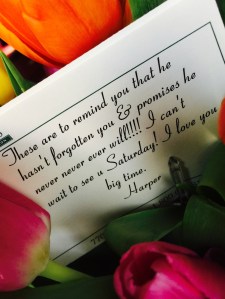 These are to remind you that he
hasn't forgotten you & promises he
never never ever will!!!! I can't
wait to see u Saturday! I love you
big time.
Harper